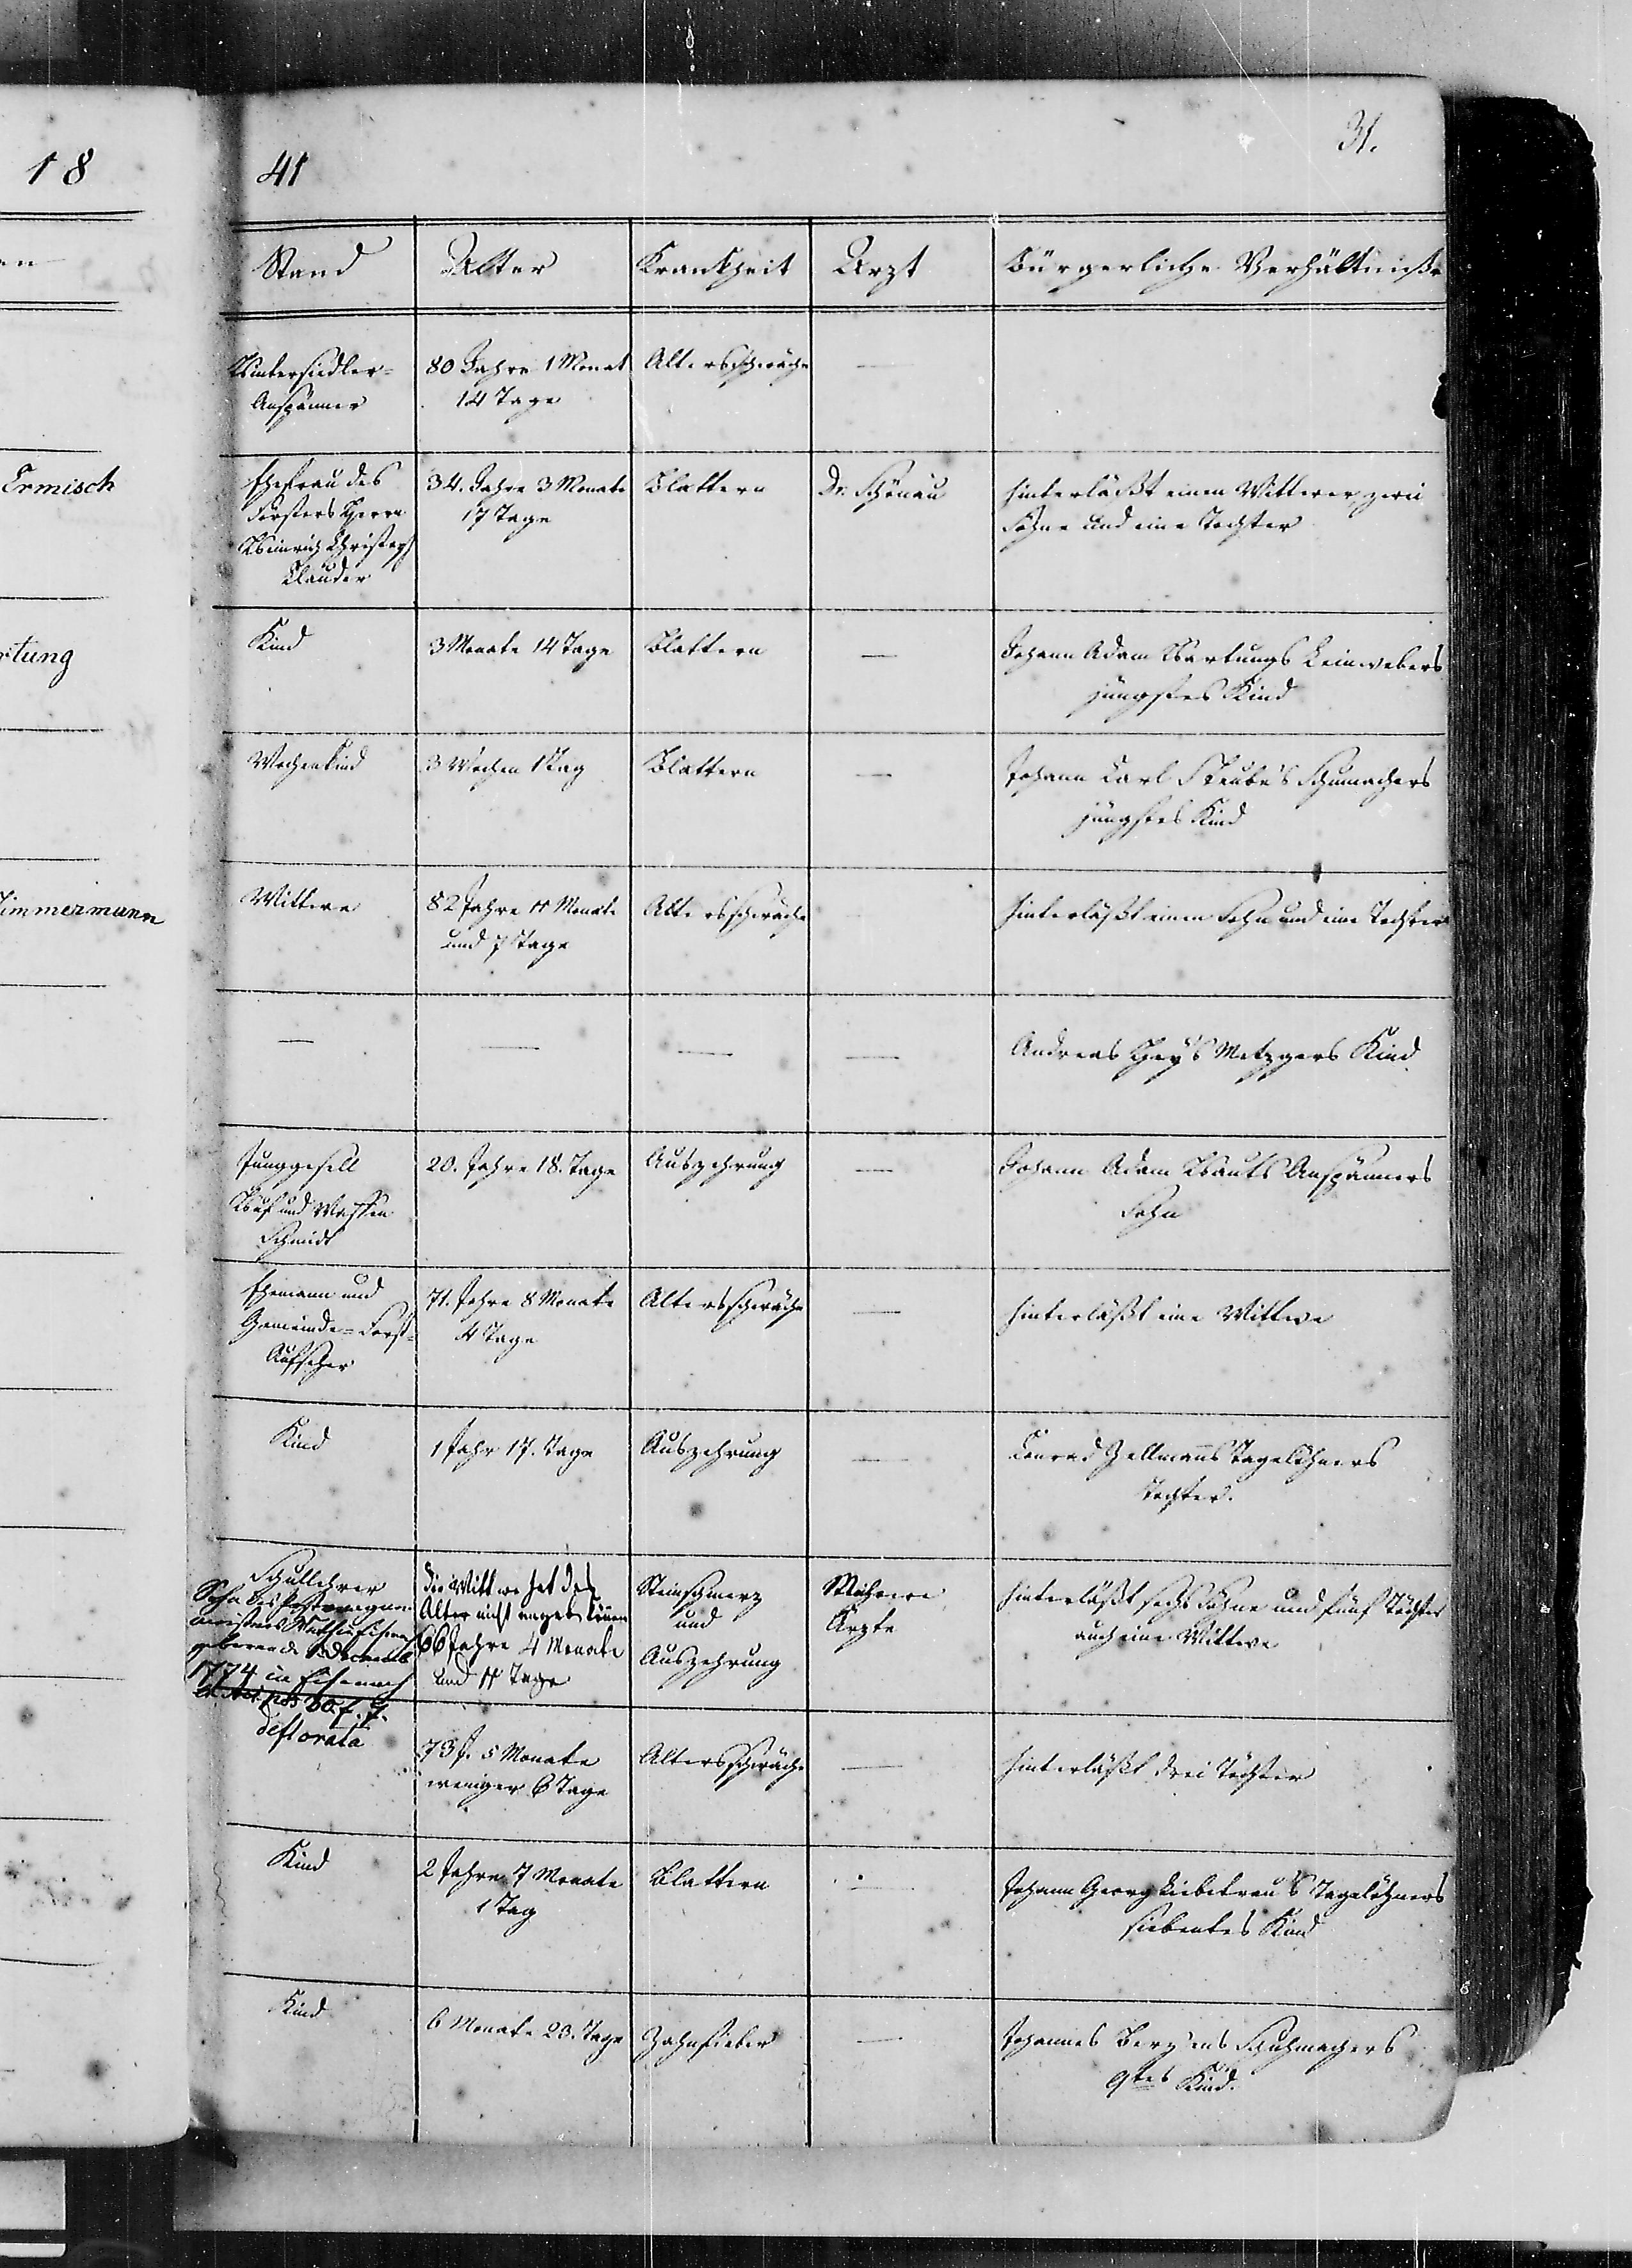 18
41
31.
en
Stand Alter Krankheit Arzt Bürgerliche Verhältniße
Hintersiedler=
Anspänner
80 Jahre 1 Monat
14 Tage
Altersschwäche
—
Ermisch
Ehefrau des
Försters Herrn
Heinrich Christoph
Clauder
34. Jahre 3 Monate
17 Tage
Blattern
Dr. Schönau
hinterläßt einen Wittwer, zwei
Söhne und eine Tochter
rtung
Kind
3 Monate 14 Tage
Blattern
—
Johann Adam Hartungs Leinwebers
jüngstes Kind
Wochenkind
3 Wochen 1 Tag
Blattern
—
Johann Carl Steube's Schumachers
jüngstes Kind
Zimmermann
Wittwe
82 Jahre 11 Monate
und 7 Tage
Altersschwäche
hinterläßt einen Sohn und eine Tochter
—
—
—
—
Andreas Hey's Metzgers Kind
Junggesell
Huf und Waffen
Schmidt
20. Jahre 18. Tage
Auszehrung
—
Johann Adam Hauts Anspänners
Sohn
Ehemann und
Gemeinde=Forst=
Aufseher
71. Jahre 8 Monate
4 Tage
Altersschwäche
—
hinterläßt eine Wittwe
Kind
1 Jahr 17. Tage
Auszehrung
—
Conrad Zellmanns Tagelöhners
Tochter.
Schullehrer
Sohn des
geboren d.
1774 in Eisenach
Die Wittwe hat das
Alter nicht angeben können
66 Jahre 4 Monate
und 11 Tage
Steinschmerz
und
Auszehrung
Mehrere
Ärzte
hinterläßt sechs Söhne und fünf Töchter
auch eine Wittwe
deflorata
73 J. 5 Monate
weniger 6 Tage
Altersschwäche
—
hinterläßt drei Töchter
Kind
2 Jahre 7 Monate
1 Tag
Blattern
—
Johann Georg Liebetrau's Tagelöhners
siebentes Kind
Kind
6 Monate 23. Tage
Zahnfieber
—
Johannes Schuhmachers
9tes Kind.